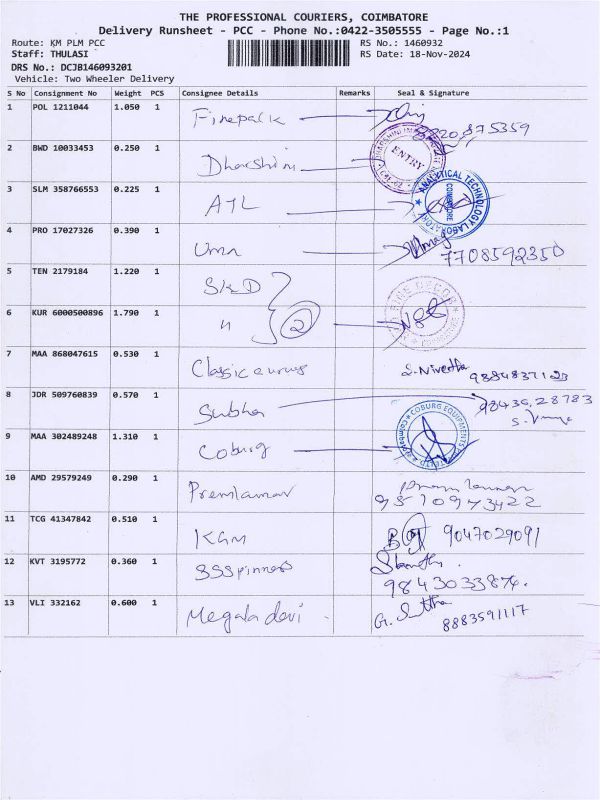 THE PROFESSIONAL COURIERS, COIMBATORE
Delivery Runsheet - PCC - Phone No.:0422-3505555 - Page No.:1
Route: KM PLM PCC
RS No.: 1460932
Staff: THULASI
RS Date: 18-Nov-2024
DRS No.: DCJB146093201
Vehicle: Two Wheeler Delivery
S No Consignment No Weight PCS Consignee Details Remarks Seal & Signature
1 POL 1211044 1.050 1 Finepack
2 BWD 10033453 0.250 1 Dharshini ENTRY
3 SLM 358766553 0.225 1 ATL ANALYTICAL TECHNOLOGY LABORATORY COIMBATORE
4 PRO 17027326 0.390 1 Uma 7708592350
5 TEN 2179184 1.220 1 SKD
6 KUR 6000500896 1.790 1 " 2
7 MAA 868047615 0.530 1 Classic S. Nivedha 9884837123
8 JDR 509760839 0.570 1 Subha 98436,28783
9 MAA 302489248 1.310 1 Coburg COBURG EQUIPMENTS
10 AMD 29579249 0.290 1 Premkumar 9510943422
11 TCG 41347842 0.510 1 KGM 9047029091
12 KVT 3195772 0.360 1 SSSpinners 9843033874.
13 VLI 332162 0.600 1 Megala devi G. 8883591117